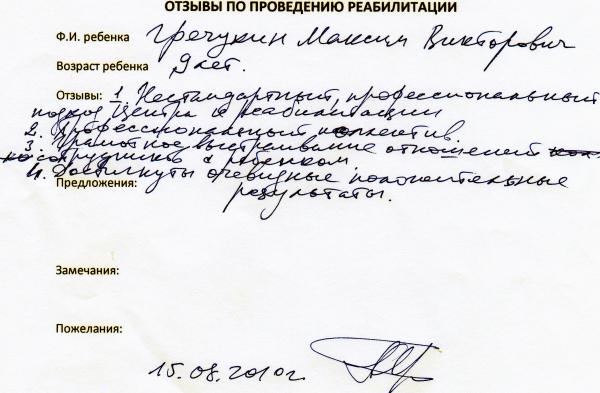 ОТЗЫВЫ ПО ПРОВЕДЕНИЮ РЕАБИЛИТАЦИИ
Ф.И. ребенка Гречухин Максим Викторович
Возраст ребенка 9 лет.
Отзывы: 1. Нестандартный, профессиональный
подход Центра к реабилитации
2. Профессиональный коллектив.
3. Грамотное выстраивание отношений
сотрудников с ребенком.
4. Достигнуты очевидные положительные
Предложения: результаты.
Замечания:
Пожелания:
15.08.2010г.